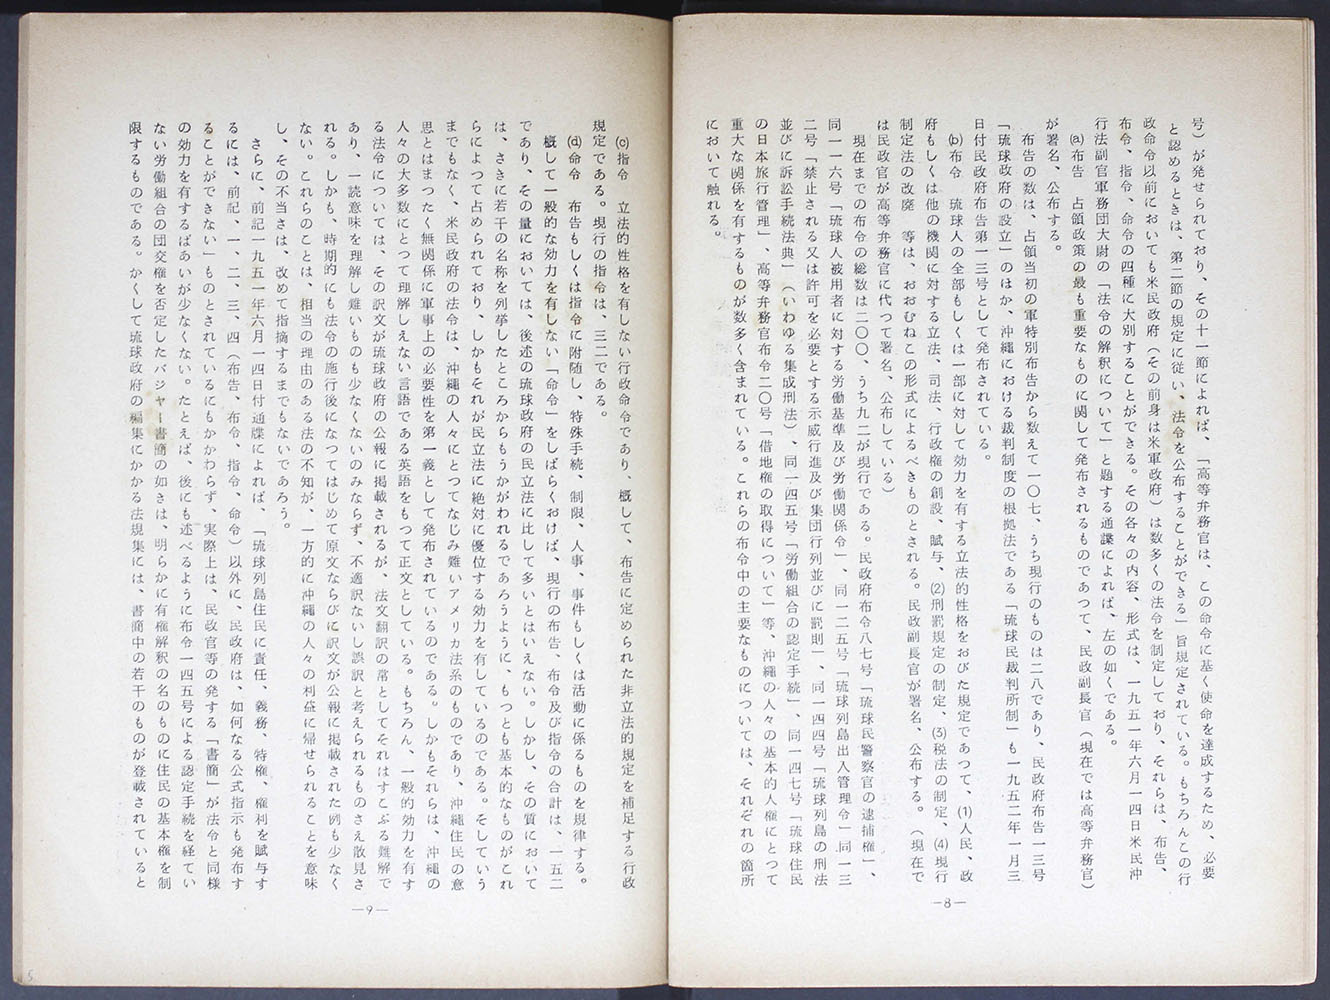 号)が発せられており、その十一節によれば、「高等弁務官は、この命令に基く使命を達成するため、必要
と認めるときは、第二節の規定に従い、法令を公布することができる」旨規定されている。もちろんこの行
政命令以前においても米民政府(その前身は米軍政府)は数多くの法令を制定しており、それらは、布告、
布令、指令、命令の四種に大別することができる。その各々の内容、形式は、一九五一年六月一四日米民沖
行法副官軍務団大尉の「法令の解釈について」と題する通牒によれば、左の如くである。
(a)布告 占領政策の最も重要なものに関して発布されるものであつて、民政副長官(現在では高等弁務官)
が署名、公布する。
布告の数は、占領当初の軍特別布告から数えて一〇七、うち現行のものは二八であり、民政府布告一三号
「琉球政府の設立」のほか、沖縄における裁判制度の根拠法である「琉球民裁判所制」も一九五二年一月三
日付民政府布告第一三号として発布されている。
(b)布令 琉球人の全部もしくは一部に対して効力を有する立法的性格をおびた規定であつて、(1)人民、政
府もしくは他の機関に対する立法、司法、行政権の創設、賦与、(2)刑罰規定の制定、(3)税法の制定、(4)現行
制定法の改廃 等は、おおむねこの形式によるべきものとされる。民政副長官が署名、公布する。(現在で
は民政官が高等弁務官に代つて署名、公布している)
現在までの布令の総数は二〇〇、うち九二が現行である。民政府布令八七号「琉球民警察官の逮捕権」、
同一一六号「琉球人被用者に対する労働基準及び労働関係令」、同一二五号「琉球列島出入管理令」同一三
二号「禁止される又は許可を必要とする示威行進及び集団行列並びに罰則」、同一四四号「琉球列島の刑法
並びに訴訟手続法典」(いわゆる集成刑法)、同一四五号「労働組合の認定手続」、同一四七号「琉球住民
の日本旅行管理」、高等弁務官布令二〇号「借地権の取得について」等、沖縄の人々の基本的人権にとつて
重大な関係を有するものが数多く含まれている。これらの布令中の主要なものについては、それぞれの箇所
において触れる。
—8—
(c)指令 立法的性格を有しない行政命令であり、概して、布告に定められた非立法的規定を補足する行政
規定である。現行の指令は、三二である。
(d)命令 布告もしくは指令に附随し、特殊手続、制限、人事、事件もしくは活動に係るものを規律する。
概して一般的な効力を有しない「命令」をしばらくおけば、現行の布告、布令及び指令の合計は、一五二
であり、その量においては、後述の琉球政府の民立法に比して多いとはいえない。しかし、その質において
は、さきに若干の名称を列挙したところからもうかがわれるであろうように、もつとも基本的なものがこれ
らによつて占められており、しかもそれが民立法に絶対に優位する効力を有しているのである。そしていう
までもなく、米民政府の法令は、沖縄の人々にとつてなじみ難いアメリカ法系のものであり、沖縄住民の意
思とはまつたく無関係に軍事上の必要性を第一義として発布されているのである。しかもそれらは、沖縄の
人々の大多数にとつて理解しえない言語である英語をもつて正文としている。もちろん、一般的効力を有す
る法令については、その訳文が琉球政府の公報に掲載されるが、法文翻訳の常としてそれはすこぶる難解で
あり、一読意味を理解し難いものも少なくないのみならず、不適訳ないし誤訳と考えられるものさえ散見さ
れる。しかも、時期的にも法令の施行後になつてはじめて原文ならびに訳文が公報に掲載された例も少なく
ない。これらのことは、相当の理由のある法の不知が、一方的に沖縄の人々の利益に帰せられることを意味
し、その不当さは、改めて指摘するまでもないであろう。
さらに、前記一九五一年六月一四日付通牒によれば、「琉球列島住民に責任、義務、特権、権利を賦与す
るには、前記、一、二、三、四(布告、布令、指令、命令)以外に、民政府は、如何なる公式指示も発布す
ることができない」ものとされているにもかかわらず、実際上は、民政官等の発する「書簡」が法令と同様
の効力を有するばあいが少なくない。たとえば、後にも述べるように布令一四五号による認定手続を経てい
ない労働組合の団交権を否定したバジャー書簡の如きは、明らかに有権解釈の名のもとに住民の基本権を制
限するものである。かくして琉球政府の編集にかかる法規集には、書簡中の若干のものが登載されていると
—9—
5